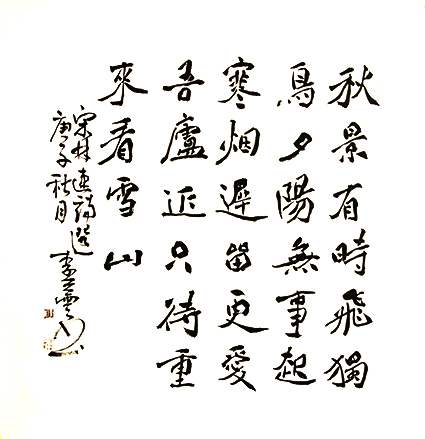 秋景有時飛獨
鳥夕陽無事起
寒烟遲留更愛
吾廬近只待重
來看雪山
宋林逋詩選
庚子秋月